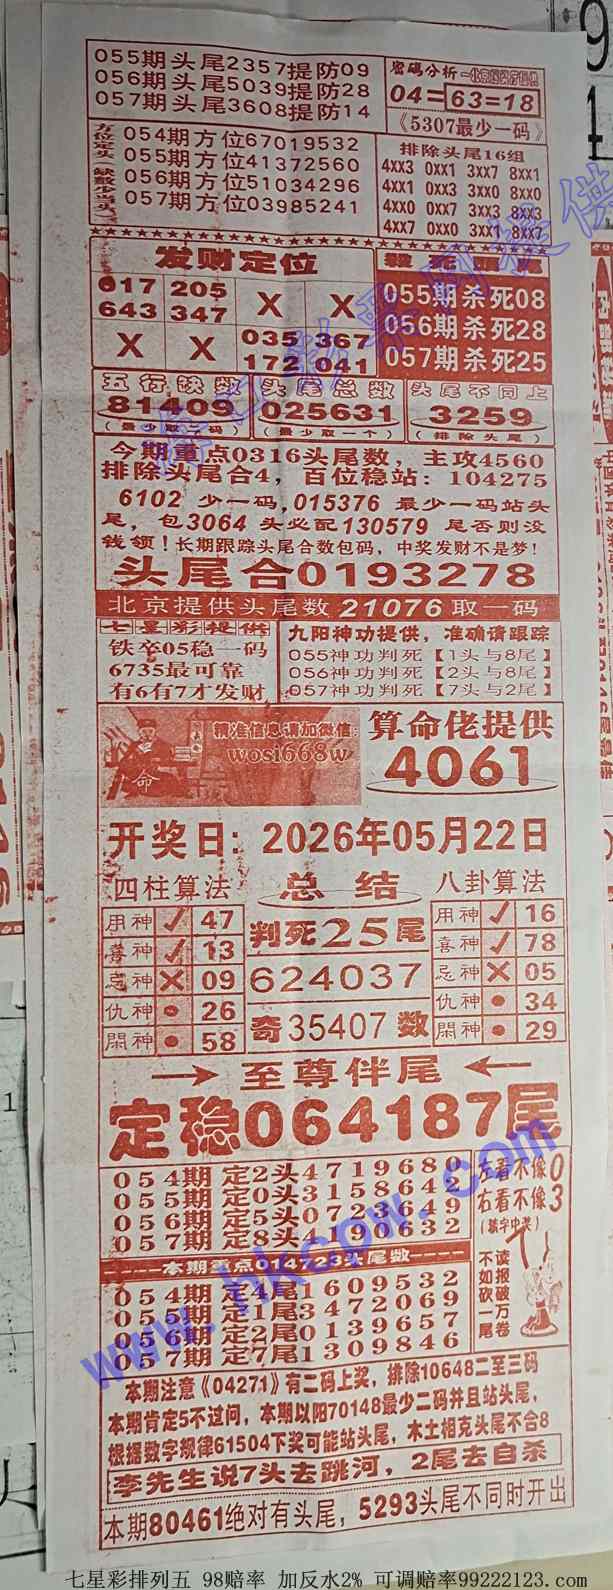 055期头尾2357提防09
056期头尾5039提防28
057期头尾3608提防14
密码分析
04=63=18
《5307最少一码》
方位定头
缺数少当头
054期方位67019532
055期方位41372560
056期方位51034296
057期方位03985241
排除头尾16组
4XX3 0XX1 3XX7 8XX1
4XX1 0XX3 3XX0 8XX0
4XX0 0XX7 3XX3 8XX3
4XX7 0XX0 3XX1 8XX7
发财定位
017 205 X X
643 347
X X 035 367
172 041
055期杀死08
056期杀死28
057期杀死25
五行缺数
81409
(最少取二码)
头尾总数
025631
(最少取一个)
头尾不同上
3259
(排除头尾)
今期重点0316头尾数，主攻4560
排除头尾合4，百位稳站：104275
6102 少一码,015376 最少一码站头
尾，包3064 头必配130579 尾否则没
钱领！长期跟踪头尾合数包码，中奖发财不是梦！
头尾合0193278
北京提供头尾数21076取一码
七星彩提供
铁卒05稳一码
6735最可靠
有6有7才发财
九阳神功提供，准确请跟踪
055神功判死【1头与8尾】
056神功判死【2头与8尾】
057神功判死【7头与2尾】
命
精准信息请加微信:
wosi668w
算命佬提供
4061
开奖日: 2026年05月22日
四柱算法
用神 ✓ 47
喜神 ✓ 13
忌神 ✕ 09
仇神 ● 26
閑神 ● 58
总结
判死25尾
624037
奇35407数
八卦算法
用神 ✓ 16
喜神 ✓ 78
忌神 ✕ 05
仇神 ● 34
閑神 ● 29
→至尊伴尾←
定稳064187尾
054期 定2头4719680
055期 定0头3158642
056期 定5头0723649
057期 定8头4190632
----本期重点014723头尾数----
054期 定4尾1609532
055期 定1尾3472069
056期 定2尾0139657
057期 定7尾1309846
左看不像0
右看不像3
(填字中奖)
读报破万卷
不如砍一尾
本期注意《04271》有二码上奖，排除10648二至三码
本期肯定5不过问，本期以阳70148最少二码并且站头尾，
根据数字规律61504下奖可能站头尾，木土相克头尾不合8
李先生说7头去跳河，2尾去自杀
本期80461绝对有头尾，5293头尾不同时开出
www.hkcow.com
七星彩排列五 98赔率 加反水2% 可调赔率99222123.com